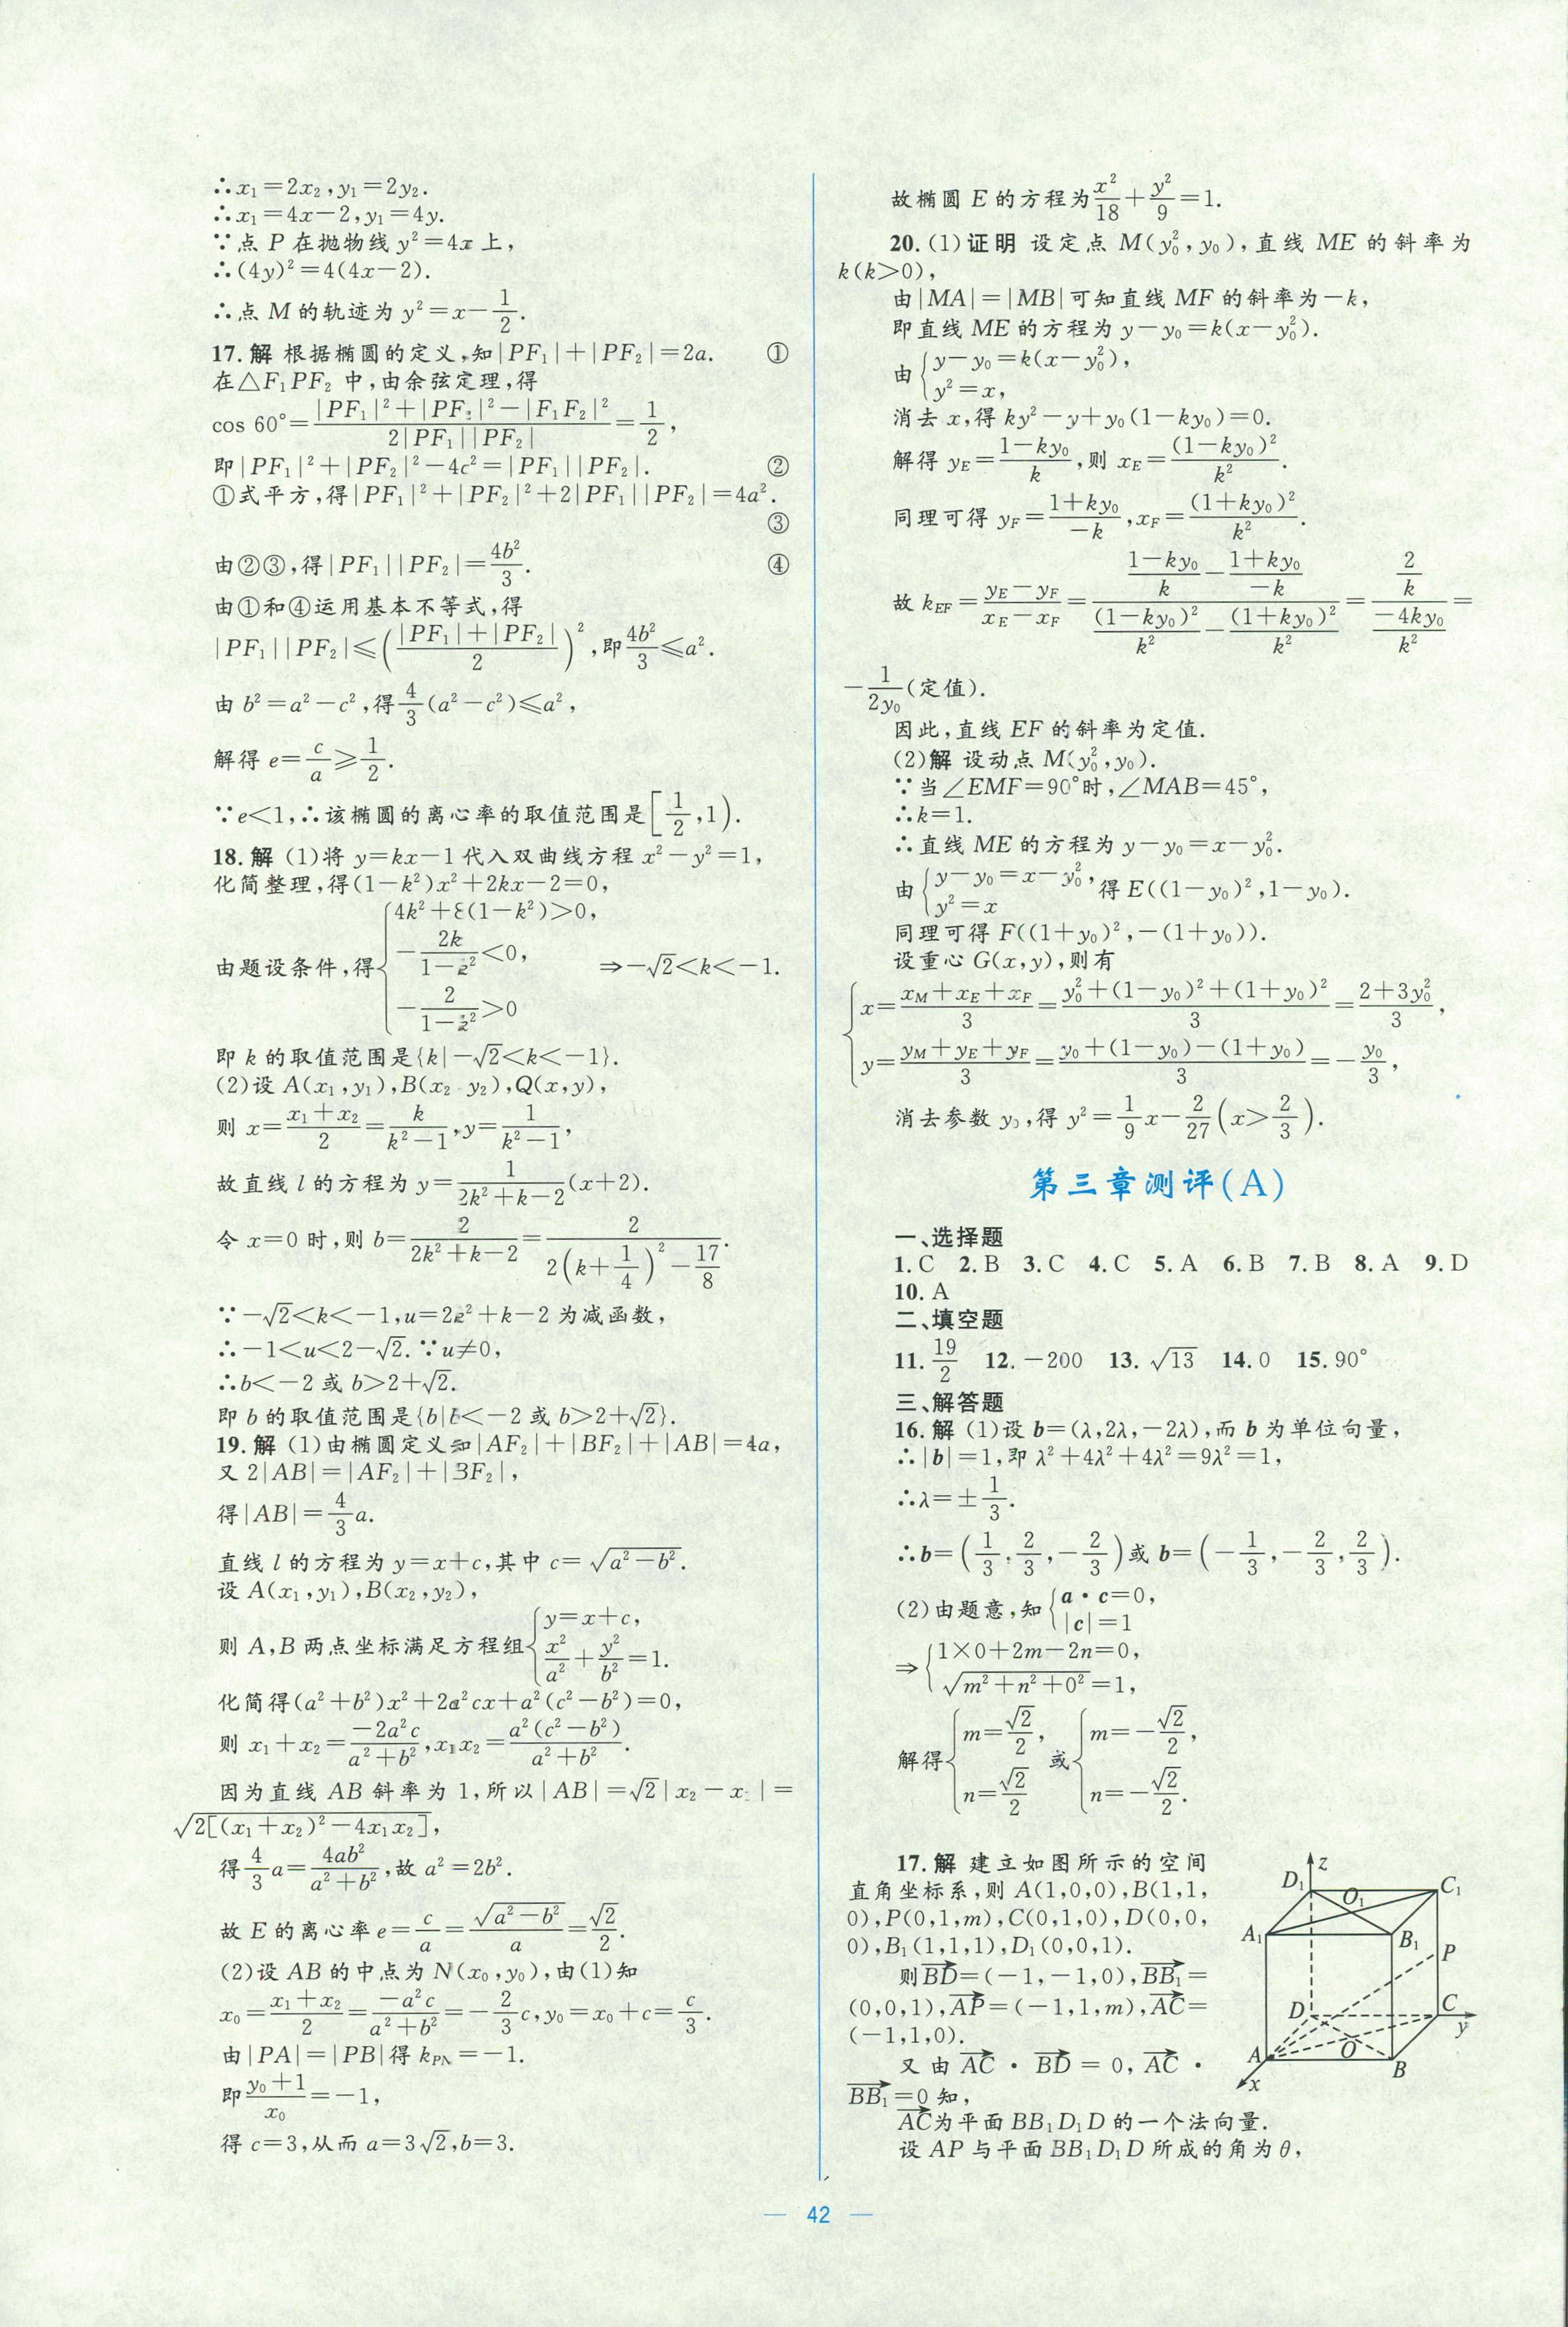 ∴x₁=2x₂,y₁=2y₂.
∴x₁=4x-2,y₁=4y.
∵点 P 在抛物线 y²=4x 上,
∴(4y)²=4(4x-2).
∴点 M 的轨迹为 y²=x-1/2.
17.解 根据椭圆的定义,知|PF₁|+|PF₂|=2a. ①
在△F₁PF₂ 中,由余弦定理,得
cos 60°=(|PF₁|²+|PF₂|²-|F₁F₂|²)/(2|PF₁||PF₂|)=1/2,
即|PF₁|²+|PF₂|²-4c²=|PF₁||PF₂|. ②
①式平方,得|PF₁|²+|PF₂|²+2|PF₁||PF₂|=4a².
③
由②③,得|PF₁||PF₂|=4b²/3. ④
由①和④运用基本不等式,得
|PF₁||PF₂|≤((|PF₁|+|PF₂|)/2)²,即4b²/3≤a².
由 b²=a²-c²,得4/3(a²-c²)≤a²,
解得 e=c/a≥1/2.
∵e<1,∴该椭圆的离心率的取值范围是[1/2,1).
18.解 (1)将 y=kx-1 代入双曲线方程 x²-y²=1,
化简整理,得(1-k²)x²+2kx-2=0,
由题设条件,得{4k²+8(1-k²)>0, -2k/(1-k²)<0, -2/(1-k²)>0 ⇒-√2<k<-1.
即 k 的取值范围是{k|-√2<k<-1}.
(2)设 A(x₁,y₁),B(x₂ y₂),Q(x,y),
则 x=(x₁+x₂)/2=k/(k²-1),y=1/(k²-1),
故直线 l 的方程为 y=1/(2k²+k-2)(x+2).
令 x=0 时,则 b=2/(2k²+k-2)=2/(2(k+1/4)²-17/8).
∵-√2<k<-1,u=2k²+k-2 为减函数,
∴-1<u<2-√2.∵u≠0,
∴b<-2 或 b>2+√2.
即 b 的取值范围是{b|b<-2 或 b>2+√2}.
19.解 (1)由椭圆定义知|AF₂|+|BF₂|+|AB|=4a,
又 2|AB|=|AF₂|+|BF₂|,
得|AB|=4/3a.
直线 l 的方程为 y=x+c,其中 c=√(a²-b²).
设 A(x₁,y₁),B(x₂,y₂),
则 A,B 两点坐标满足方程组{y=x+c, x²/a²+y²/b²=1.
化简得(a²+b²)x²+2a²cx+a²(c²-b²)=0,
则 x₁+x₂=-2a²c/(a²+b²),x₁x₂=a²(c²-b²)/(a²+b²).
因为直线 AB 斜率为 1,所以|AB|=√2|x₂-x₁|=
√(2[(x₁+x₂)²-4x₁x₂]),
得4/3a=4ab²/(a²+b²),故 a²=2b².
故 E 的离心率 e=c/a=√(a²-b²)/a=√2/2.
(2)设 AB 的中点为 N(x₀,y₀),由(1)知
x₀=(x₁+x₂)/2=-a²c/(a²+b²)=-2/3c,y₀=x₀+c=c/3.
由|PA|=|PB|得 k_PN=-1.
即(y₀+1)/x₀=-1,
得 c=3,从而 a=3√2,b=3.
故椭圆 E 的方程为x²/18+y²/9=1.
20.(1)证明 设定点 M(y₀²,y₀),直线 ME 的斜率为
k(k>0),
由|MA|=|MB|可知直线 MF 的斜率为-k,
即直线 ME 的方程为 y-y₀=k(x-y₀²).
由{y-y₀=k(x-y₀²), y²=x,
消去 x,得 ky²-y+y₀(1-ky₀)=0.
解得 y_E=(1-ky₀)/k,则 x_E=(1-ky₀)²/k².
同理可得 y_F=(1+ky₀)/-k,x_F=(1+ky₀)²/k².
故 k_EF=(y_E-y_F)/(x_E-x_F)=((1-ky₀)/k-(1+ky₀)/-k)/((1-ky₀)²/k²-(1+ky₀)²/k²)=(2/k)/(-4ky₀/k²)=
-1/(2y₀)(定值).
因此,直线 EF 的斜率为定值.
(2)解 设动点 M(y₀²,y₀).
∵当∠EMF=90°时,∠MAB=45°,
∴k=1.
∴直线 ME 的方程为 y-y₀=x-y₀².
由{y-y₀=x-y₀², y²=x 得 E((1-y₀)²,1-y₀).
同理可得 F((1+y₀)²,-(1+y₀)).
设重心 G(x,y),则有
{x=(x_M+x_E+x_F)/3=(y₀²+(1-y₀)²+(1+y₀)²)/3=(2+3y₀²)/3,
y=(y_M+y_E+y_F)/3=(y₀+(1-y₀)-(1+y₀))/3=-y₀/3,
消去参数 y₀,得 y²=1/9x-2/27(x>2/3).
第三章测评(A)
一、选择题
1.C 2.B 3.C 4.C 5.A 6.B 7.B 8.A 9.D
10.A
二、填空题
11.19/2 12.-200 13.√13 14.0 15.90°
三、解答题
16.解 (1)设 b=(λ,2λ,-2λ),而 b 为单位向量,
∴|b|=1,即 λ²+4λ²+4λ²=9λ²=1,
∴λ=±1/3.
∴b=(1/3,2/3,-2/3)或 b=(-1/3,-2/3,2/3).
(2)由题意,知{a·c=0, |c|=1
⇒{1×0+2m-2n=0, √(m²+n²+0²)=1,
解得{m=√2/2, n=√2/2 或{m=-√2/2, n=-√2/2.
17.解 建立如图所示的空间
直角坐标系,则 A(1,0,0),B(1,1,
0),P(0,1,m),C(0,1,0),D(0,0,
0),B₁(1,1,1),D₁(0,0,1).
则BD→=(-1,-1,0),BB₁→=
(0,0,1),AP→=(-1,1,m),AC→=
(-1,1,0).
又由 AC→·BD→=0,AC→·
BB₁→=0 知,
AC→为平面 BB₁D₁D 的一个法向量.
设 AP 与平面 BB₁D₁D 所成的角为 θ,
z
D₁ O₁ C₁
A₁ B₁ P
D C
y
A O B
x
42